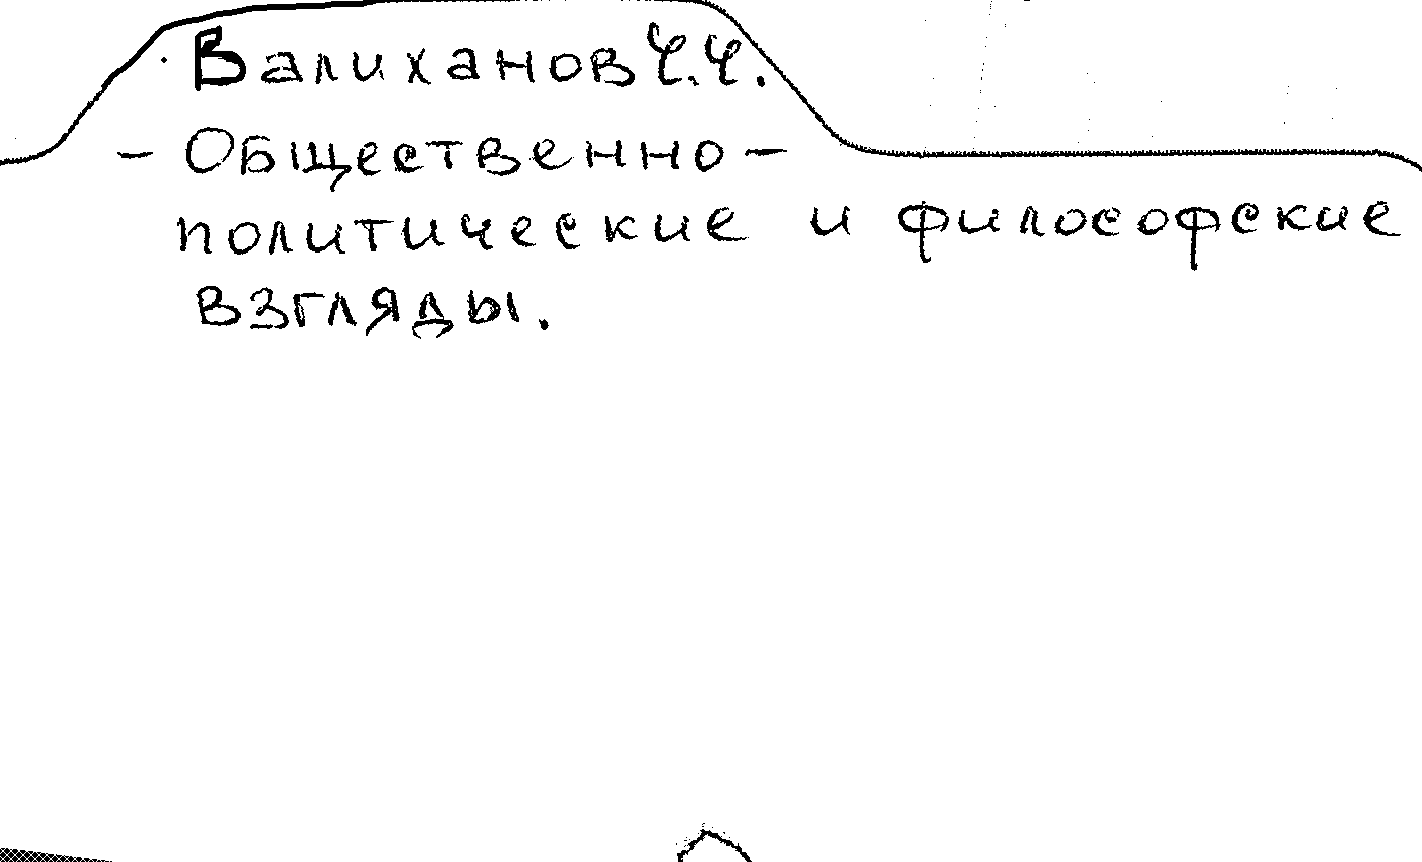 Валиханов Ч.Ч.
- Общественно -
политические и философские
взгляды.